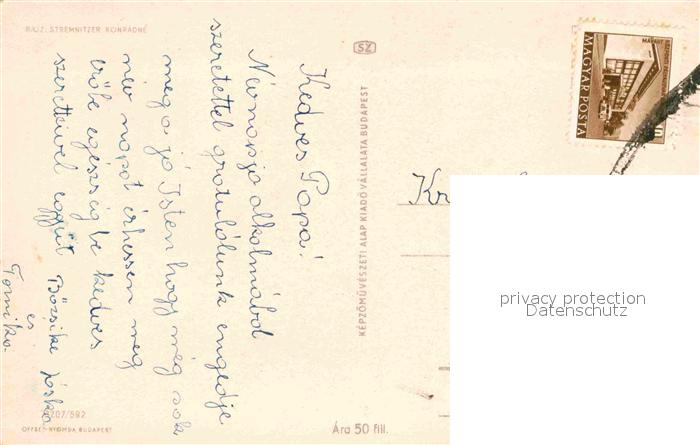 RAJZ: STREMNITZER KONRÁDNÉ
Kedves Papa!
Névnapja alkalmából
szeretettel gratulálunk engedje
meg a jó Isten hogy még sok
név napot érhessen meg
erőbe egészségbe kedves
szeretteivel együt Bözsike Jóska
és
Tomika.
70707/592
OFFSET-NYOMDA BUDAPEST
Ára 50 fill.
SZ
KÉPZŐMŰVÉSZETI ALAP KIADÓVÁLLALATA BUDAPEST
MAGYAR POSTA
MÁVAUT
Kr
privacy protection
Datenschutz